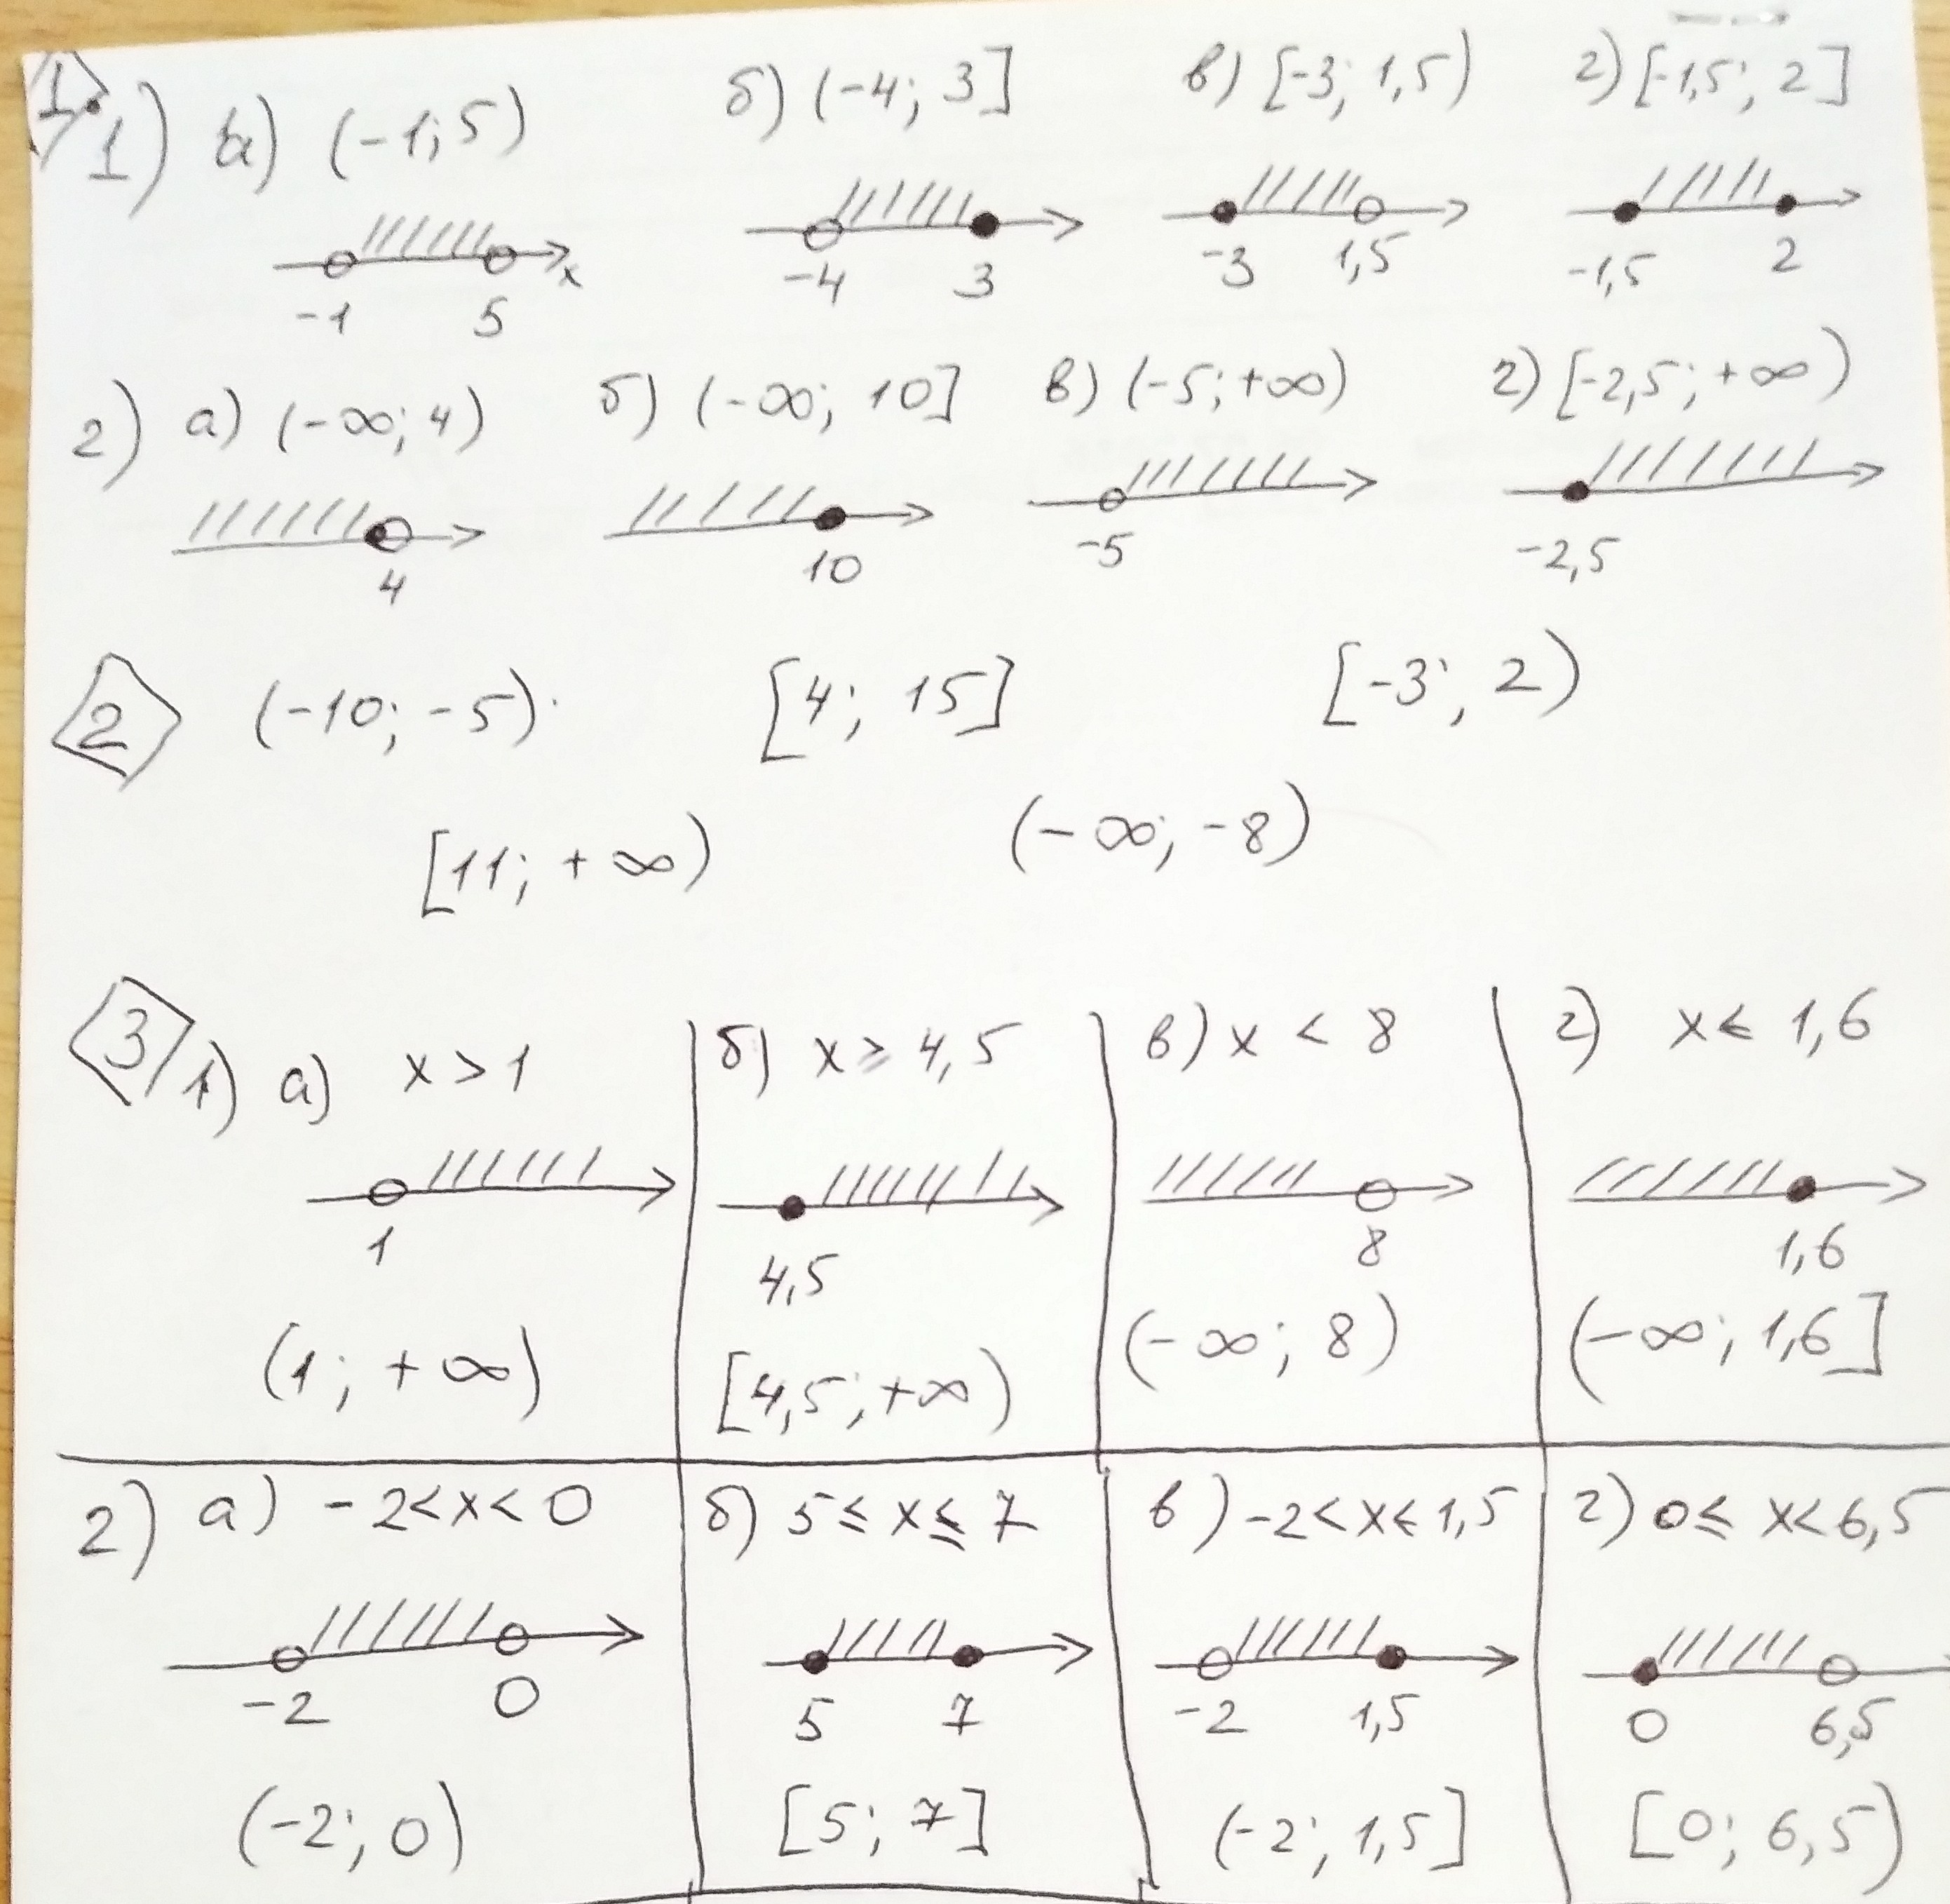 1. 1) а) (-1; 5) б) (-4; 3] в) [-3; 1,5) г) [-1,5; 2]
-1 5 x -4 3 -3 1,5 -1,5 2
2) а) (-∞; 4) б) (-∞; 10] в) (-5; +∞) г) [-2,5; +∞)
4 10 -5 -2,5
2 (-10; -5) [4; 15] [-3; 2)
[11; +∞) (-∞; -8)
3 1) а) x > 1 б) x ⩾ 4,5 в) x < 8 г) x ⩽ 1,6
1 4,5 8 1,6
(1; +∞) [4,5; +∞) (-∞; 8) (-∞; 1,6]
2) а) -2 < x < 0 б) 5 ≤ x ≤ 7 в) -2 < x ≤ 1,5 г) 0 ≤ x < 6,5
-2 0 5 7 -2 1,5 0 6,5
(-2; 0) [5; 7] (-2; 1,5] [0; 6,5)